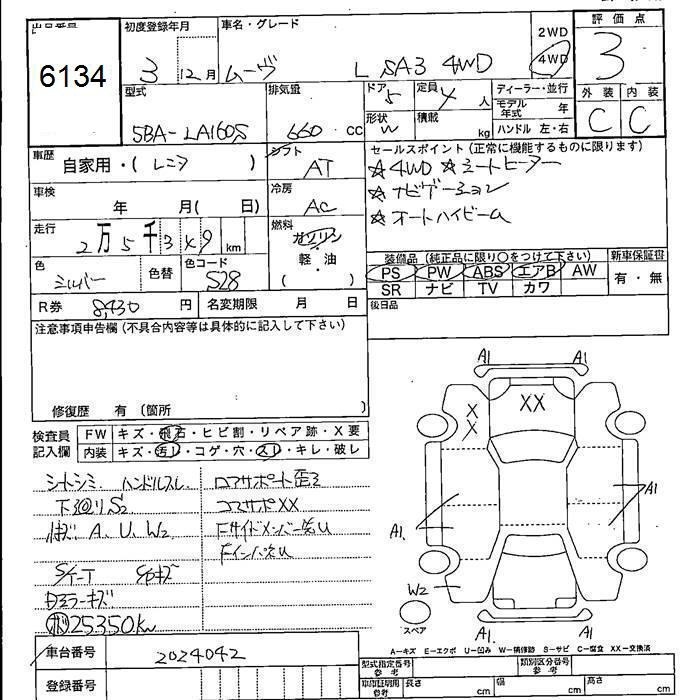 出品番号
6134
初度登録年月
3 12月
車名・グレード
ムーヴ L SA3 4WD
2WD
4WD
評価点
3
型式
5BA-LA160S
排気量
660 cc
ドア
5
形状
W
定員
4 人
積載
kg
ディーラー・並行
モデル年式 年
ハンドル 左・右
外装 内装
C C
車歴
自家用・(レンタ )
シフト
AT
セールスポイント(正常に機能するものに限ります)
☆4WD ☆シートヒーター
☆ナビゲーション
☆オートハイビーム
車検
年 月( 日)
冷房
AC
走行
2万5千349 km
燃料
ガソリン
軽・油
( )
色
シルバー
色替
色コード
S28
装備品(純正品に限り○をつけて下さい)
PS PW ABS エアB AW
SR ナビ TV カワ
新車保証書
有・無
R券 8,430 円
名変期限 月 日
後日品
注意事項申告欄(不具合内容等は具体的に記入して下さい)
修復歴 有(箇所 )
検査員記入欄
FW キズ・飛石・ヒビ割・リペア跡・X要
内装 キズ・汚レ・コゲ・穴・スレ・キレ・破レ
シートシミ ハンドルスレ
下廻りS2
A、U、W2
キズ
ドアミラーキズ
25350km
コアサポート歪ミ
コアサポXX
Fサイドメンバー先U
FインパネU
A1 A1
XX
X
X
A1. A1
W2
スペア
A1. A1
A-キズ E-エクボ U-凹み W-補修跡 S-サビ C-腐食 XX-交換済
車台番号
2024042
登録番号
型式指定番号
参考
類別区分番号
参考
車庫証明用
参考
長さ cm
幅 cm
高さ cm